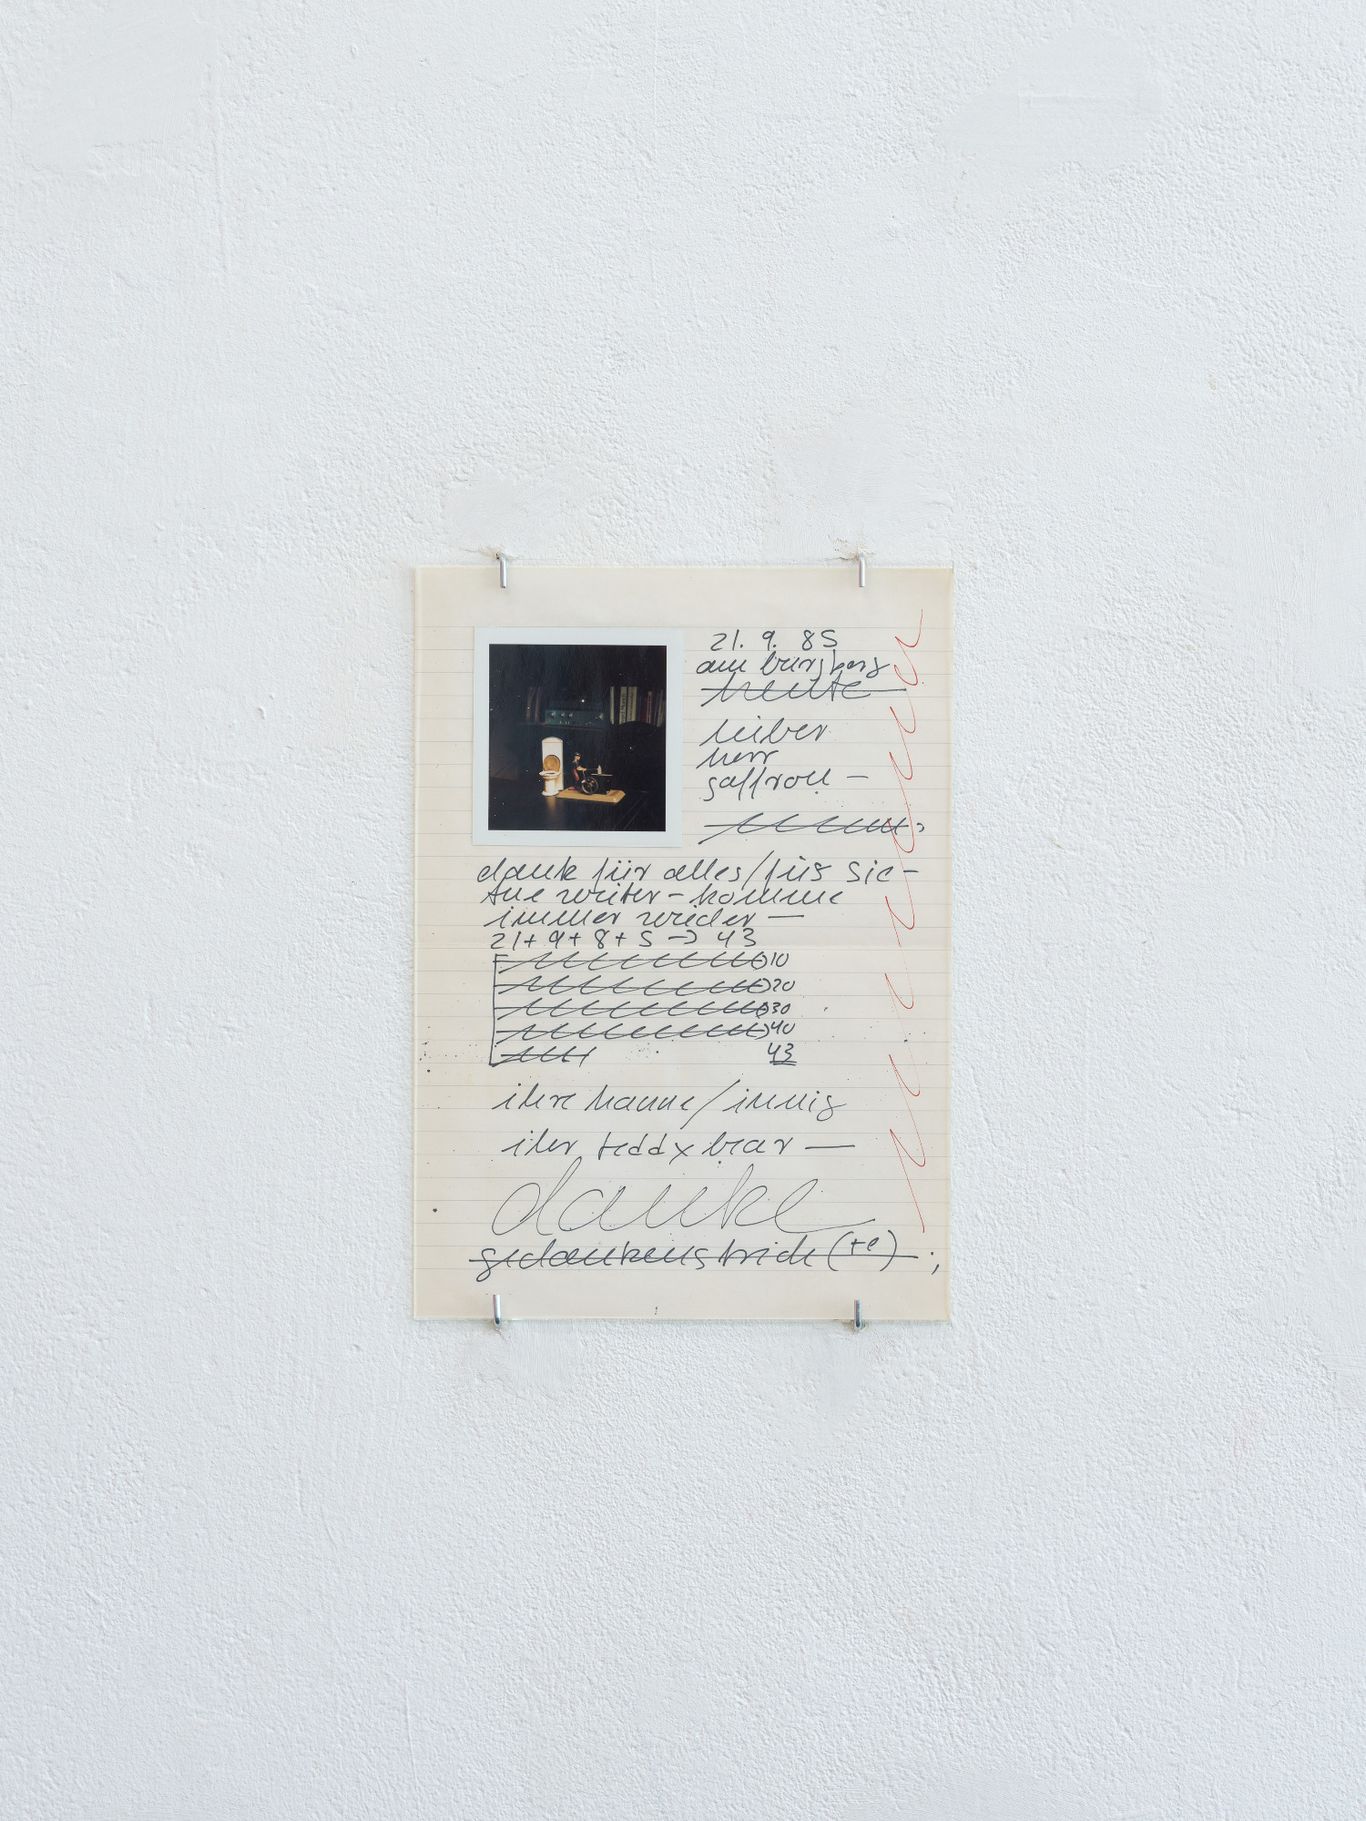 21. 9. 85
am burgberg
heute
lieber
herr
saffron —
danke für alles/für sie —
tue weiter - komme
immer wieder —
21+9+8+5 → 43
10
20
30
40
43
ihre hanne/innig
ihr teddx bear —
danke
gedankenstrich (te) ;